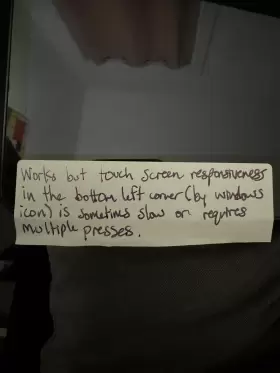 Works but touch screen responsiveness
in the bottom left corner (by windows
icon) is sometimes slow or requires
multiple presses.